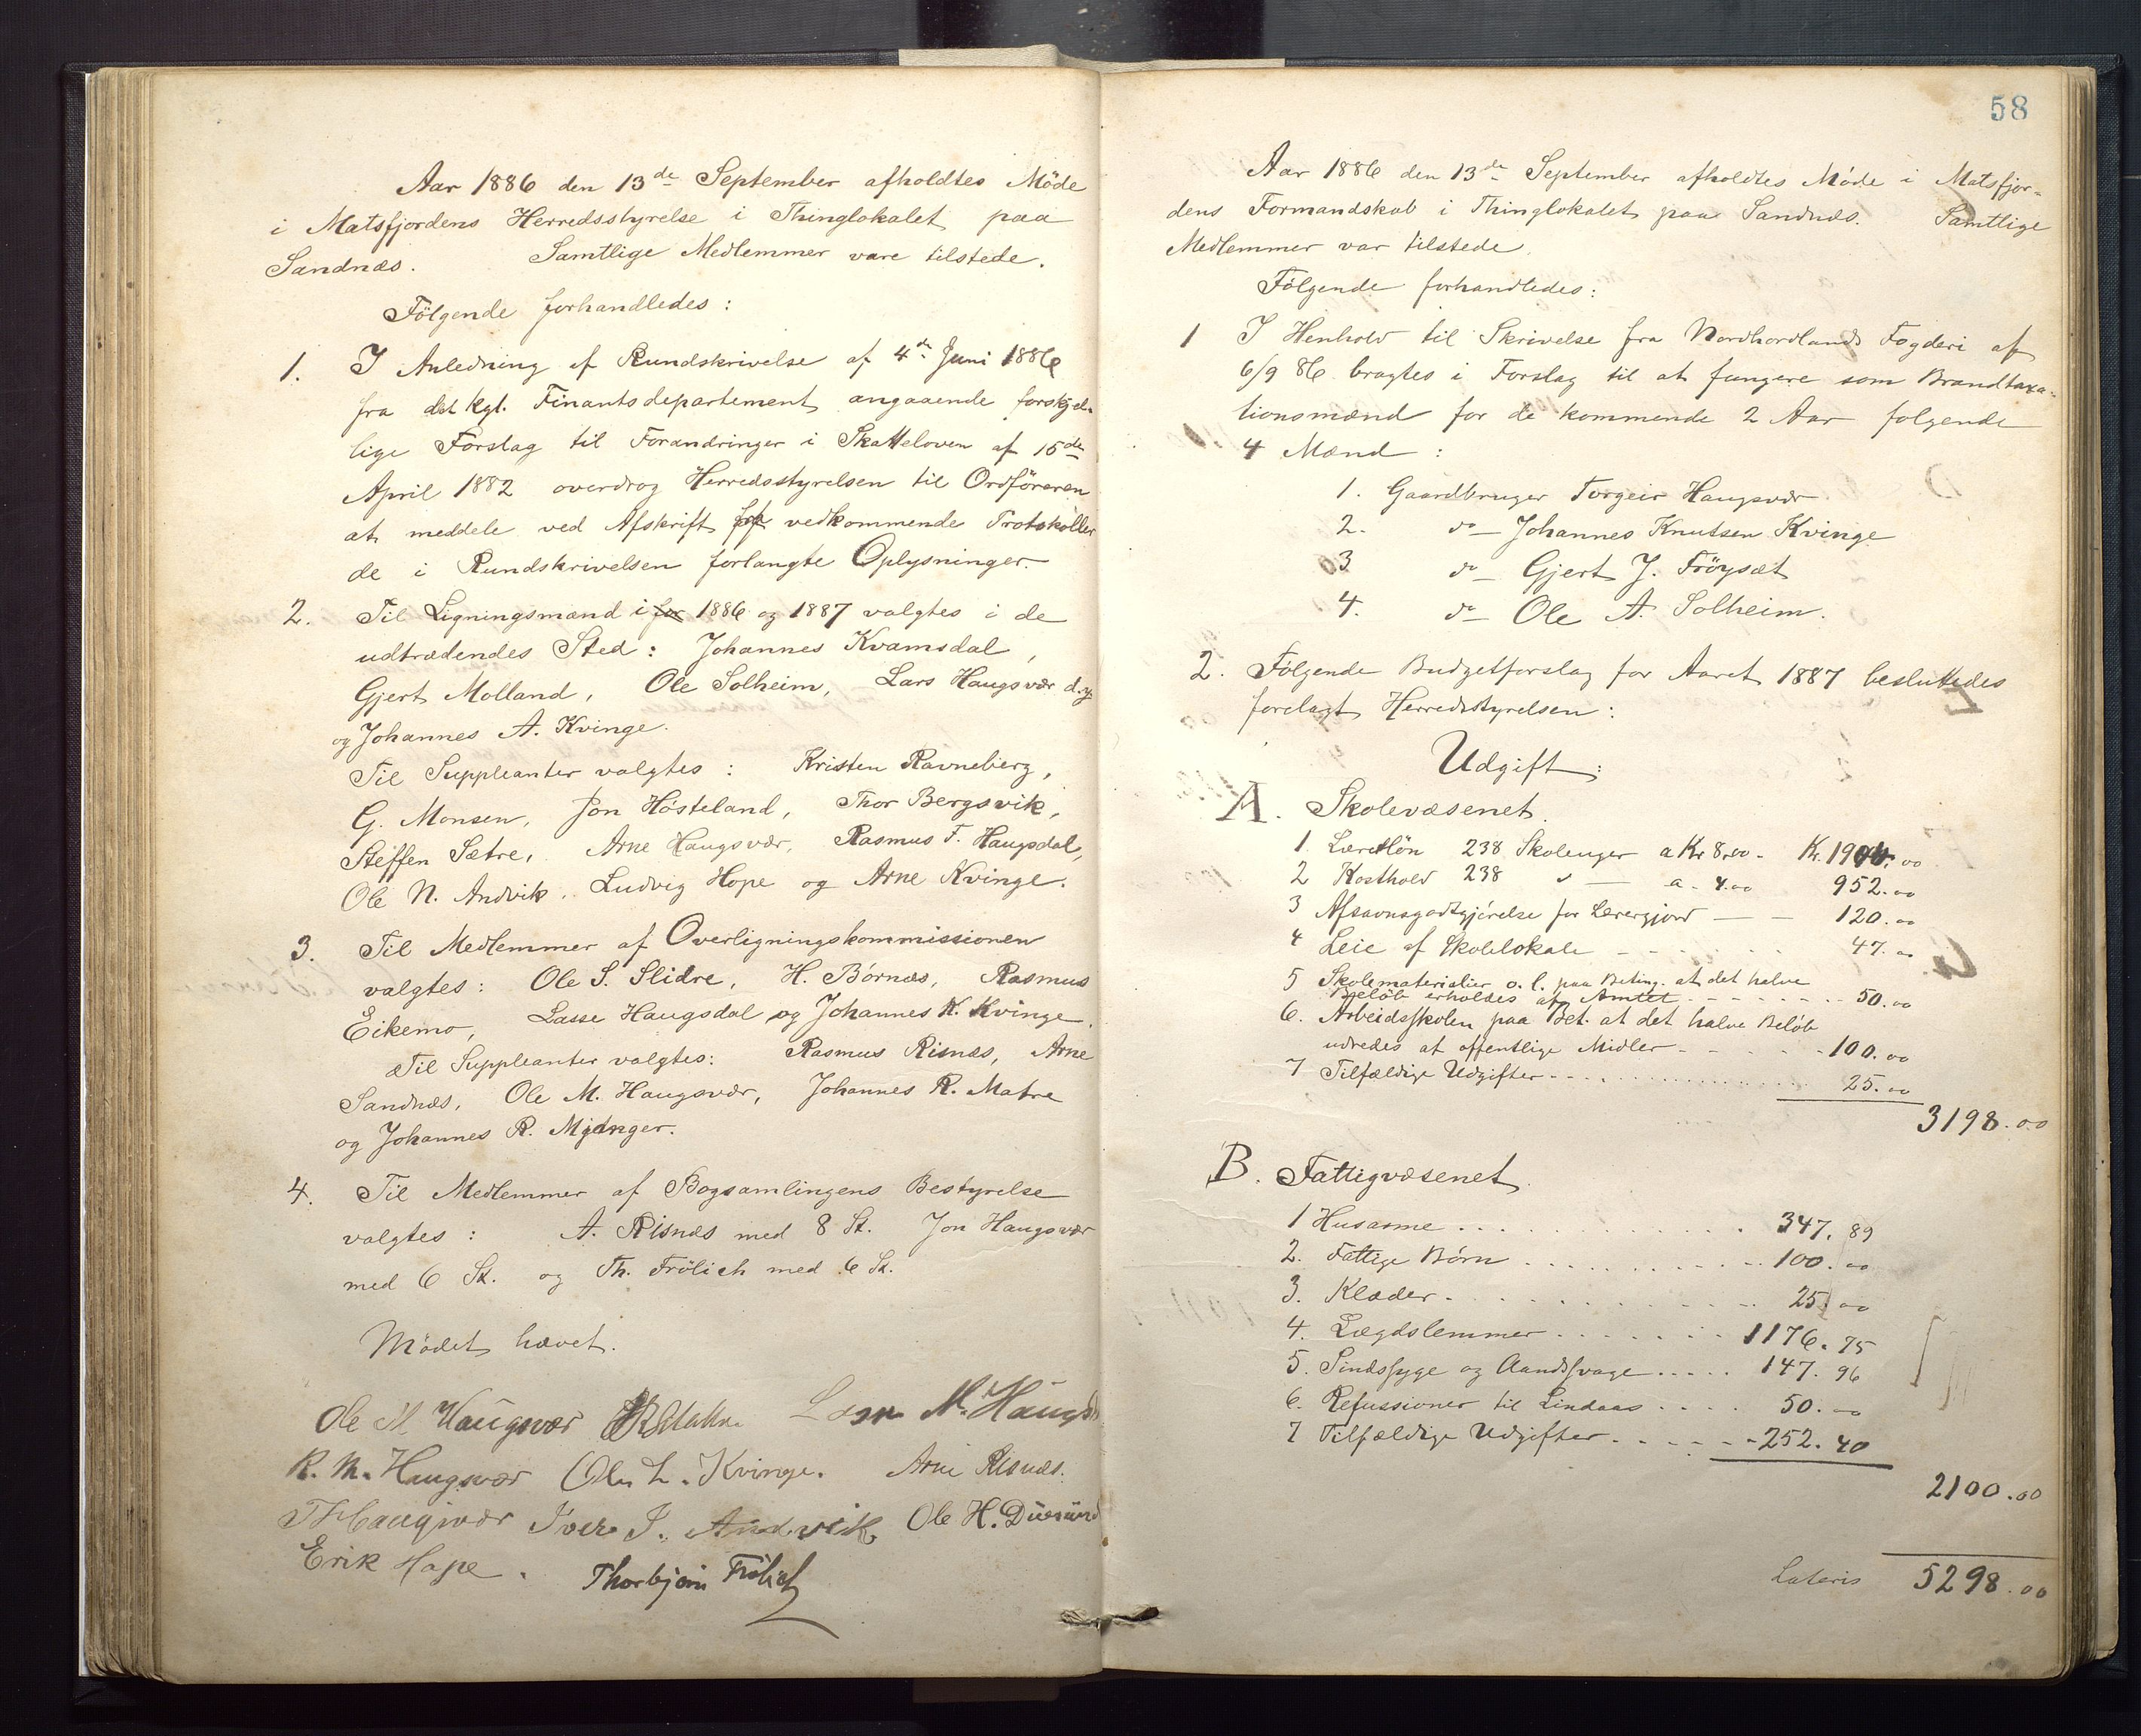 Aar 1886 den 13de September afholdtes Möde
i Matsfjordens Herredsstyrelse i Thinglokalet paa
Sandnæs. Samtlige Medlemmer vare tilstede.
Fölgende forhandledes:
1. I Anledning af Rundskrivelse af 4de Juni 1886
fra det kgl. Finantsdepartement angaaende forskjel-
lige Forslag til Forandringer i Skatteloven af 15de
April 1882 overdrog Herredsstyrelsen til Ordföreren
at meddele ved Afskrift af vedkommende Protokoller
de i Rundskrivelsen forlangte Oplysninger.
2. Til Ligningsmænd i for 1886 og 1887 valgtes i de
udtrædendes Sted: Johannes Kvamsdal,
Gjert Molland, Ole Solheim, Lars Haugsvær d.y.
og Johannes A. Kvinge.
Til Suppleanter valgtes: Kristen Ravneberg,
G. Monsen, Jon Hösteland, Thor Bergsvik,
Steffen Sætre, Arne Haugsvær, Rasmus F. Haugsdal,
Ole N. Andvik, Ludvig Hope og Arne Kvinge.
3. Til Medlemmer af Overligningskommissionen
valgtes: Ole S. Slidre, H. Börnæs, Rasmus
Eikemo, Lasse Haugsdal og Johannes K. Kvinge.
Til Suppleanter valgtes: Rasmus Risnæs, Arne
Sandnæs, Ole M. Haugsvær, Johannes R. Matre
og Johannes R. Mjanger.
4. Til Medlemmer af Bogsamlingens Bestyrelse
valgtes: A. Risnæs med 8 St. Jon Haugsvær
med 6 St. og Th. Frölich med 6 St.
Mödet hævet.
Ole M Haugsvær Lasse M. Haugsd
R. M. Haugsvær Ole L. Kvinge. Arne Risnæs.
T Haugsvær Iver J. Andvik Ole H. Duesund
Erik Hope. Thorbjörn Frölich
58
Aar 1886 den 13de September afholdtes Möde i Matsfjor-
dens Formandskab i Thinglokalet paa Sandnæs. Samtlige
Medlemmer var tilstede.
Fölgende forhandledes:
1 I Henhold til Skrivelse fra Nordhordlands Fogderi af
6/9 86 bragtes i Forslag til at fungere som Brandtaxa-
tionsmænd for de kommende 2 Aar følgende
4 Mænd:
1. Gaardbruger Torgeir Haugsvær
2. do – Johannes Knutsen Kvinge
3 do – Gjert J. Fröysæt
4. do – Ole A. Solheim.
2. Følgende Budgetforslag for Aaret 1887 besluttedes
forelagt Herredsstyrelsen:
Udgift:
A. Skolevæsenet.
1. Lærerlön 238 Skoleuger a Kr 8,00 - Kr. 1904.00
2 Kosthold 238 " — a - 4.00 952.00
3 Afsavnsgodtgjörelse for Lærerjord — — 120.00
4 Leie af Skolelokale - - - - 47.00
5 Skolematerialier o. l. paa Beting. at det halve
Belöb erholdes af Amtet - - - - - 50.00
6. Arbeidsskolen paa Bet. at det halve Belöb
udredes af offentlige Midler - - - - 100.00
7 Tilfældige Udgifter - - - - 25.00
3198.00
B. Fattigvæsenet.
1 Husarme . . . . 347.89
2. Fattige Börn . . . . 100.00
3. Klæder . . . . 25.00
4. Lægdslemmer . . . . 1176.75
5. Sindssyge og Aandssvage . . . . 147.96
6. Refussioner til Lindaas . . . . 50.00
7 Tilfældige Udgifter . . . . 252.40
2100.00
Lateris 5298.00